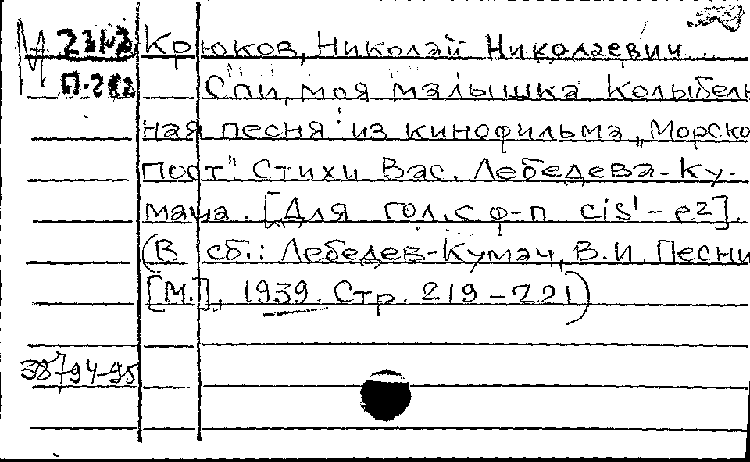 М 231-3 Крюков, Николай Николаевич
П-282 Спи, моя малышка Колыбель
ная песня из кинофильма „Морско
пост" Стихи Вас. Лебедева-Ку-
мача. [Для гол. с ф-п cis¹-e²].
(В сб.: Лебедев-Кумач, В.И. Песни
[М.], 1939. Стр. 219-221)
38794-95